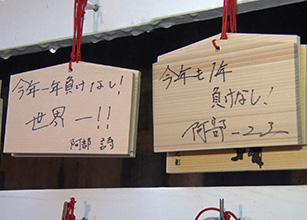 今年一年負けなし!
世界一!!
阿部 詩
今年も1年
負けなし!
阿部一二三